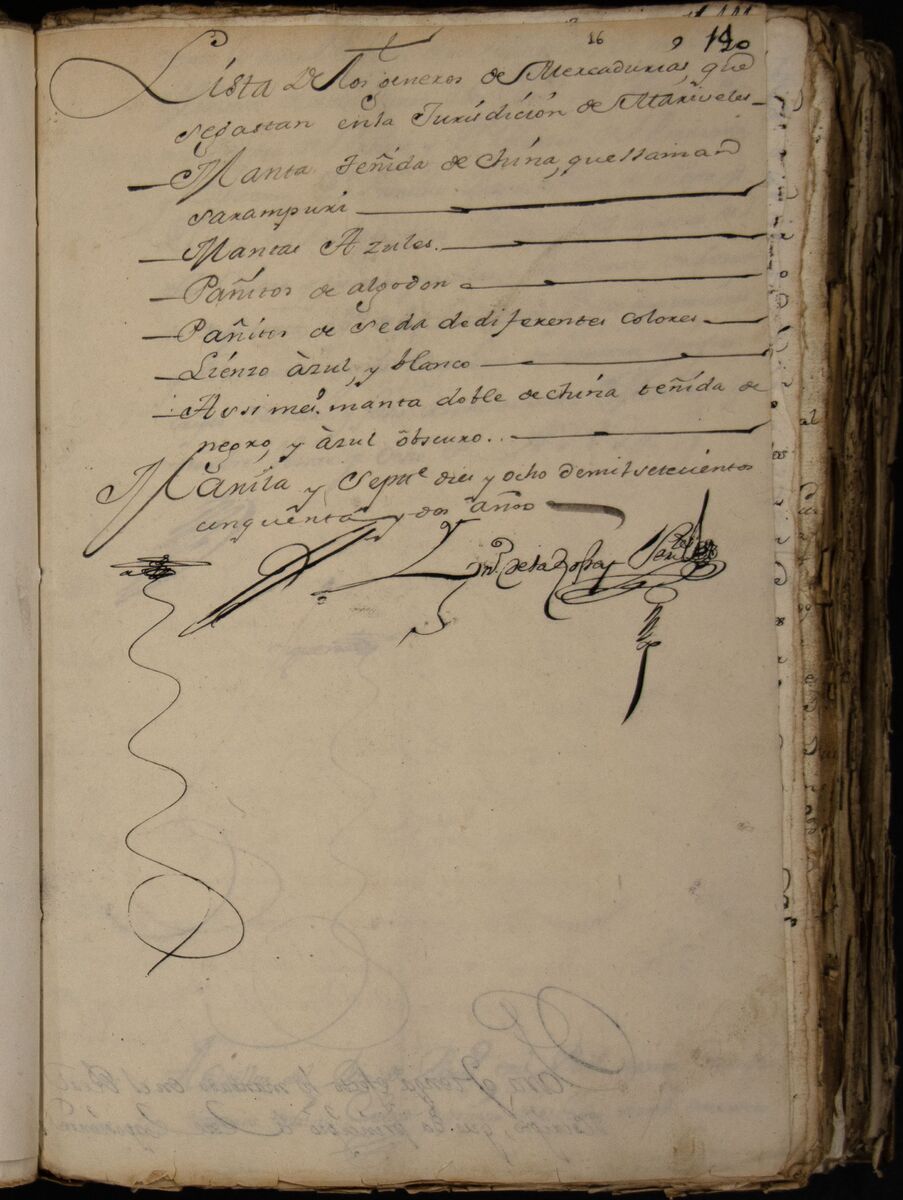 16
140
Lista de los generos de Mercadurias, que
segastan enla Jurisdicion de Mariveles
Manta teñida de China, quellaman
sarampuri
Mantas Azules.
Pañitos de algodon
Pañitos de seda dediferentes colores
Lienzo àzul, y blanco
Assi mês. manta doble de china teñida de
negro, y àzul òbscuro..
Manila y Sepre. diez y ocho demilsetecientos
cinquênta y dos años
de la Rosa